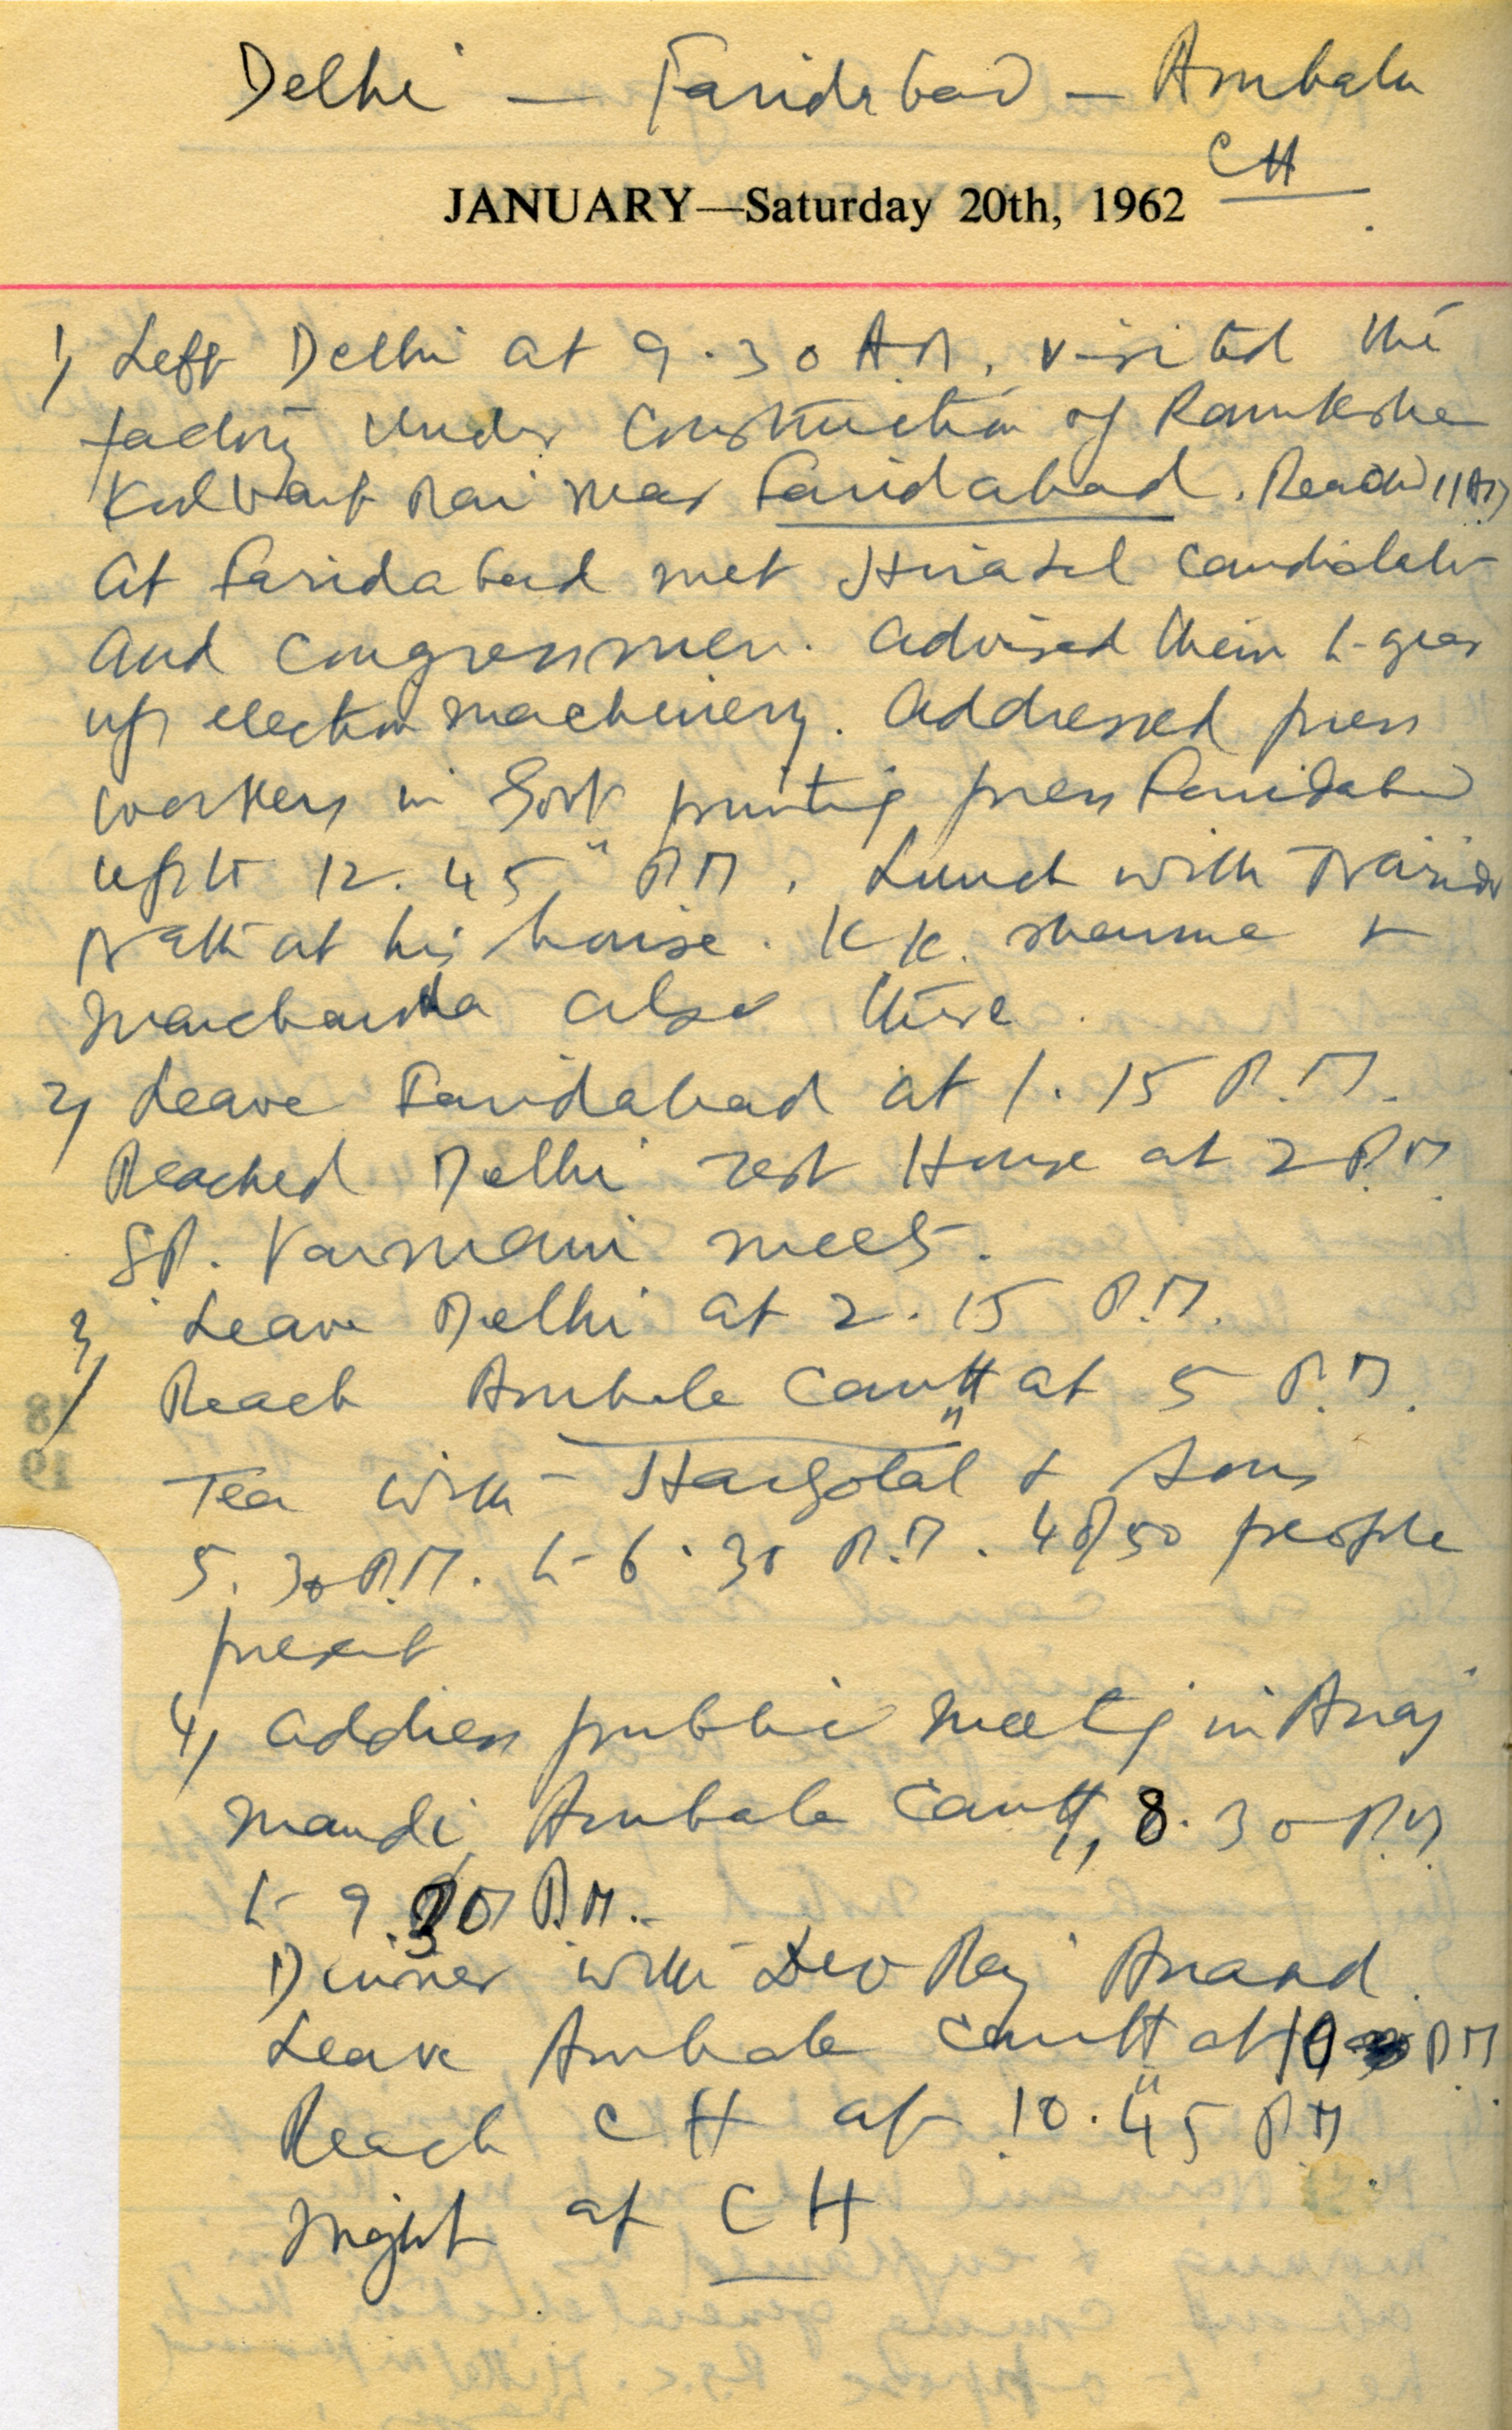 Delhi — Faridabad — Ambala
CH
JANUARY—Saturday 20th, 1962
1) Left Delhi at 9.30 A.M. visited the
factory under construction of
Kulwant Rai near Faridabad. Reached 11 AM
At Faridabad met candidate
and Congressmen. Advised them to gear
up election machinery. Addressed press
workers in Govt printing press Faridabad
upto 12.45 P.M. Lunch with
Nath at his house. K.K. Sharma &
Manchanda also there.
2) Leave Faridabad at 1.15 P.M.
Reached Delhi rest House at 2 P.M.
SP. Varmani meets.
3) Leave Delhi at 2.15 P.M.
Reach Ambala Cantt at 5 P.M.
Tea with & Sons
5.30 P.M. to 6.30 P.M. 40/50 people
present
4) Address public meeting in Anaj
Mandi, Ambala Cantt, 8.30 P.M.
to 9.30 P.M.
Dinner with Dev Raj Anand.
Leave Ambala Cantt at 10 P.M.
Reach CH at 10.45 P.M.
Night at CH
18
19